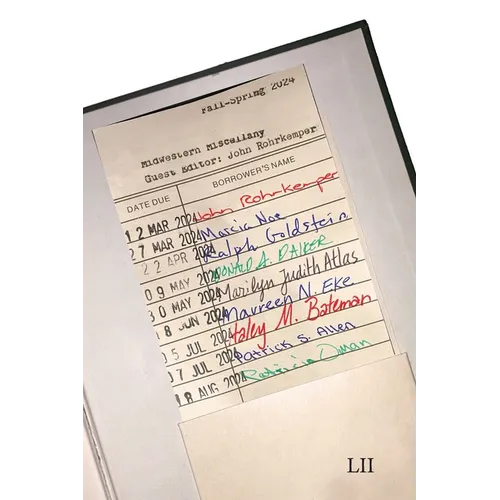 Fall-Spring 2024
Midwestern Miscellany
Guest Editor: John Rohrkemper
DATE DUE BORROWER'S NAME
12 MAR 2024 John Rohrkemper
27 MAR 2024 Marcia Noe
22 APR 2024 Ralph Goldstein
09 MAY 2024 DONALD A. DAIKER
30 MAY 2024 Marilyn Judith Atlas
8 JUN 2024 Maureen N. Eke
05 JUL 2024 Haley M. Bateman
07 JUL 2024 Patrick S. Allen
18 AUG 2024 Patricia Oman
LII